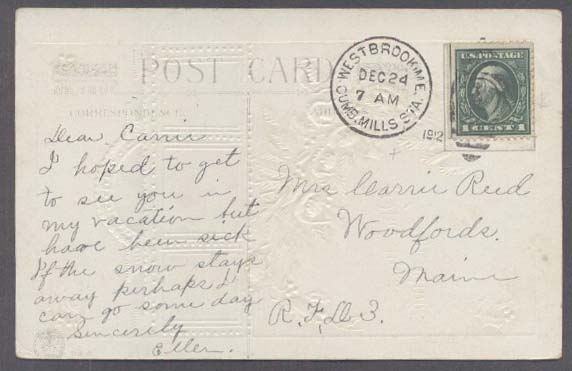 POST CARD
CORRESPONDENCE
WESTBROOK, ME.
DEC 24
7 AM
CUMB. MILLS STA.
1912
U.S. POSTAGE
1 CENT 1
Dear Carrie
I hoped to get
to see you in
my vacation but
have been sick
If the snow stays
away perhaps I
can go some day
Sincerily
Ellen.
Mrs Carrie Reed
Woodfords.
Maine
R.F.D. 3.